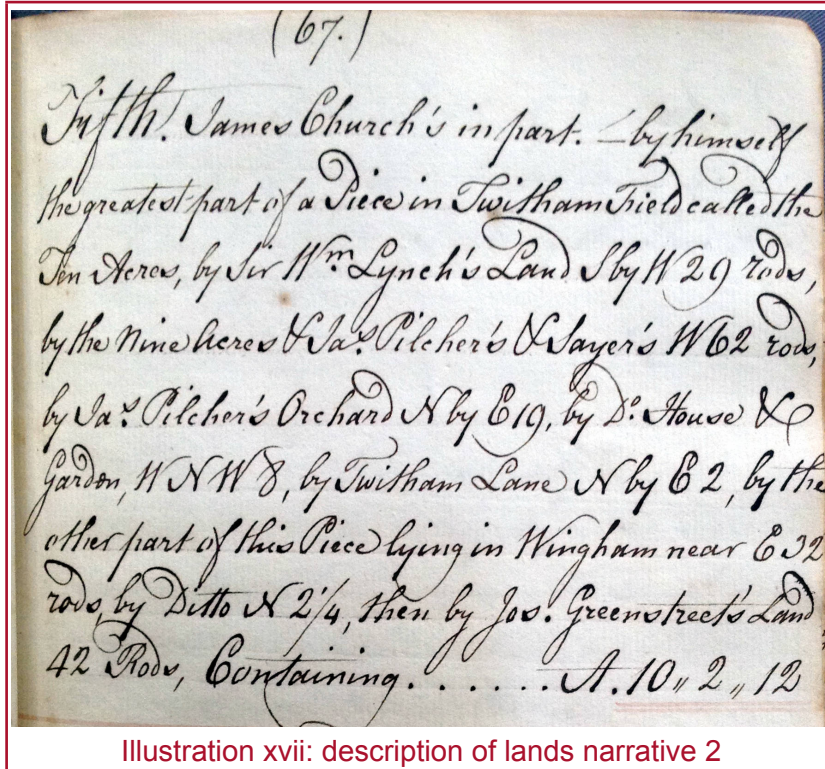 (67.)
Fifth. James Church's in part. — by himself
the greatest part of a Piece in Twitham Field called the
Ten Acres, by Sir Wm. Lynch's Land S by W 29 rods,
by the Nine Acres & Jas. Pilcher's & Sayer's W 62 rods,
by Jas. Pilcher's Orchard N by E 19, by Do. House &
Garden, W N W 8, by Twitham Lane N by E 2, by the
other part of this Piece lying in Wingham near E 32
rods, by Ditto N 2 1/4, then by Jos. Greenstreet's Land
42 Rods, Containing . . . . . . . A. 10 ,, 2 ,, 12
Illustration xvii: description of lands narrative 2